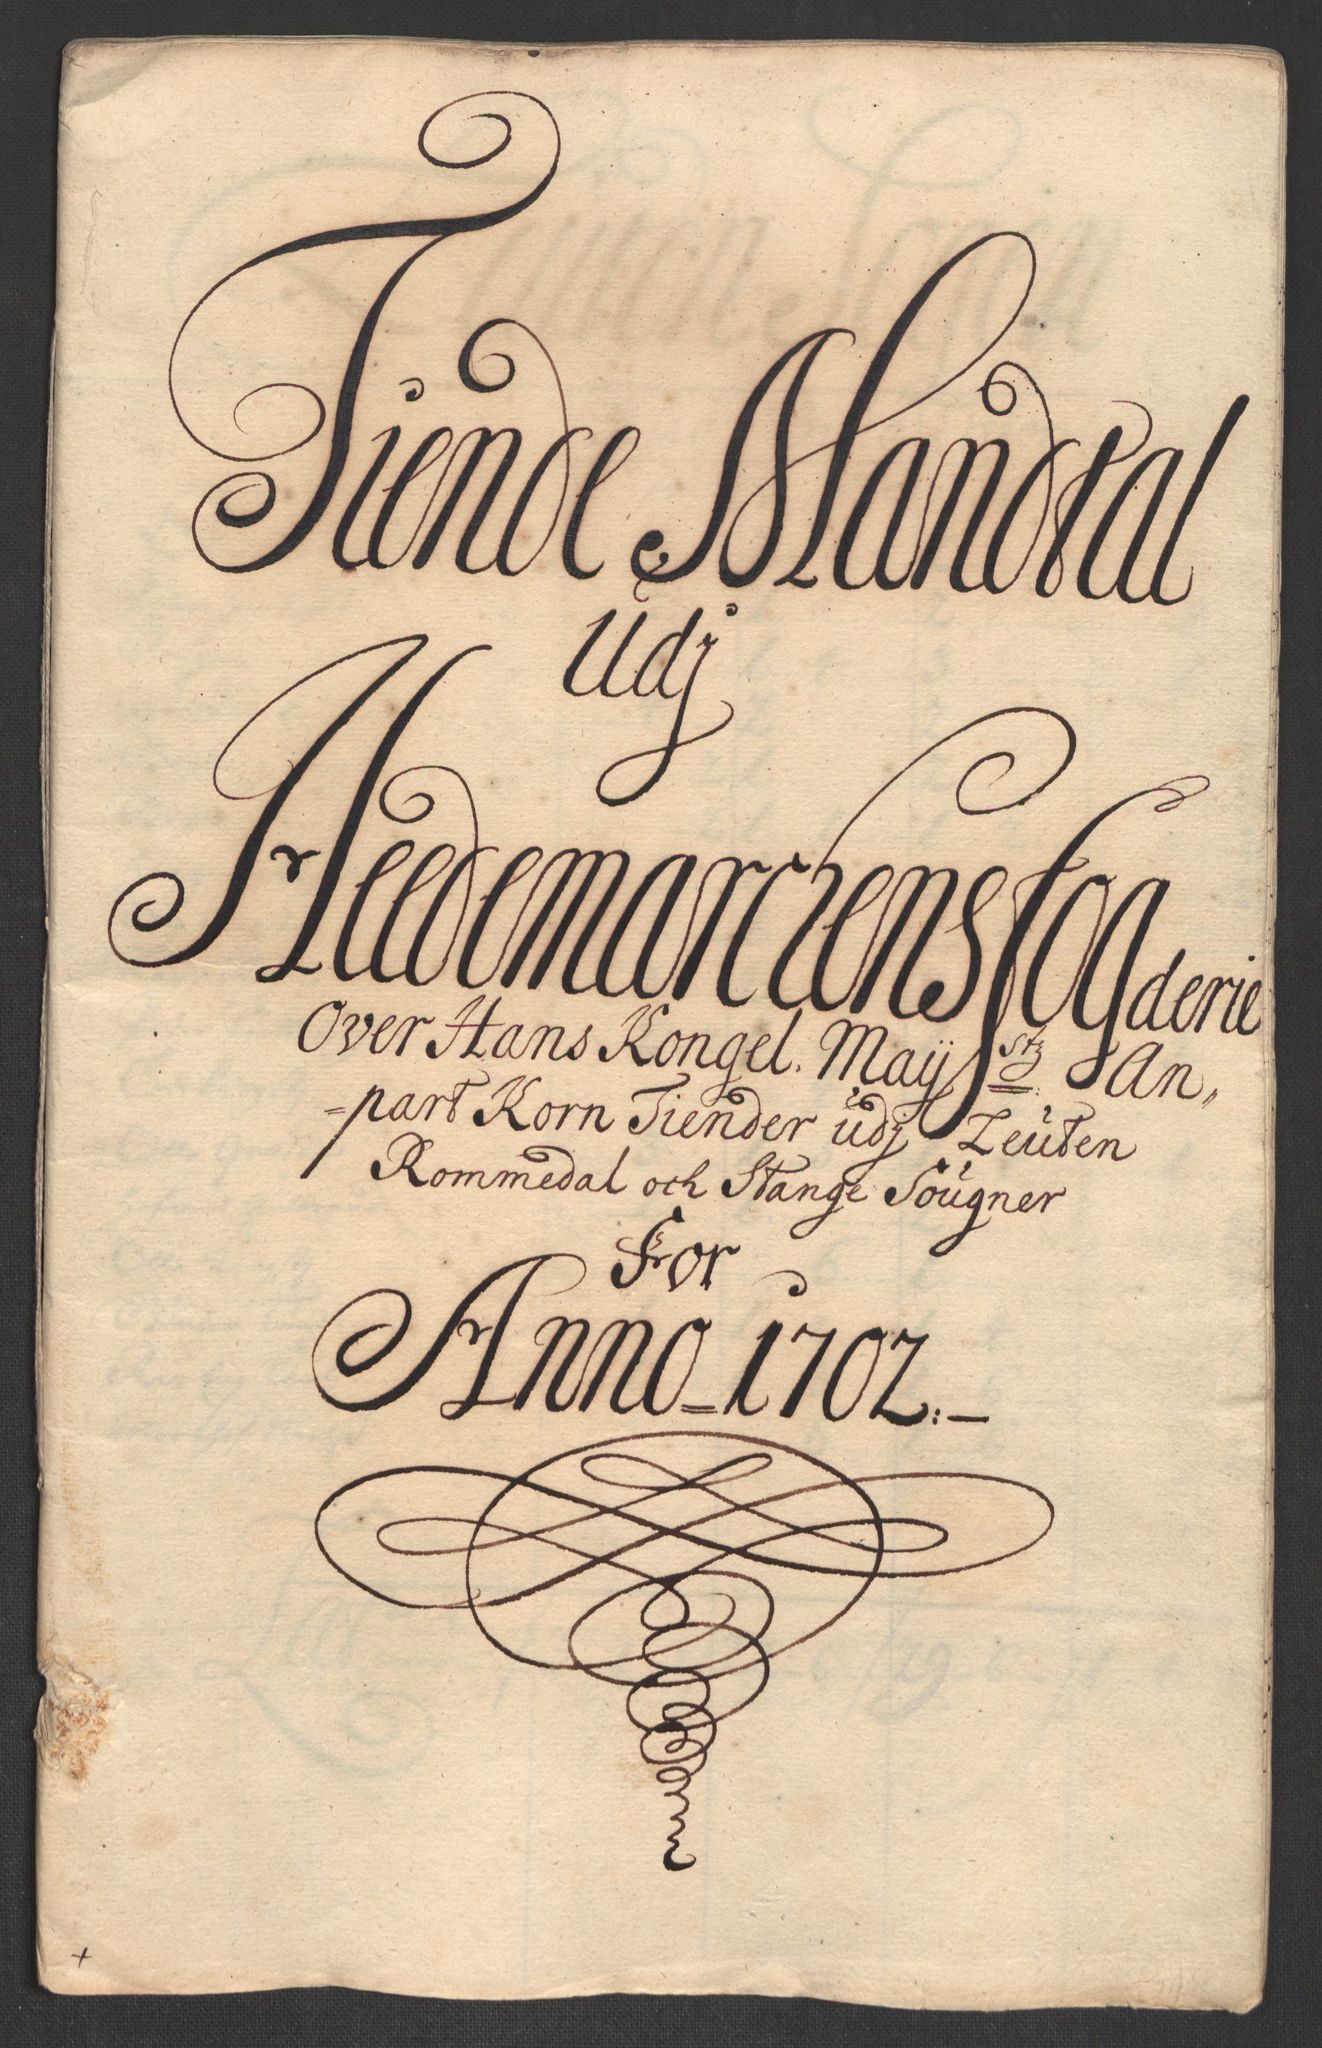 Tiende Mandtal
Udj
Hedemarckens fogderie
Over Hans Kongel. Maÿstz An„
=part Korn Tiender udj Leuten
Rommedal och Stange Sougner
For
Anno_ 1702:—